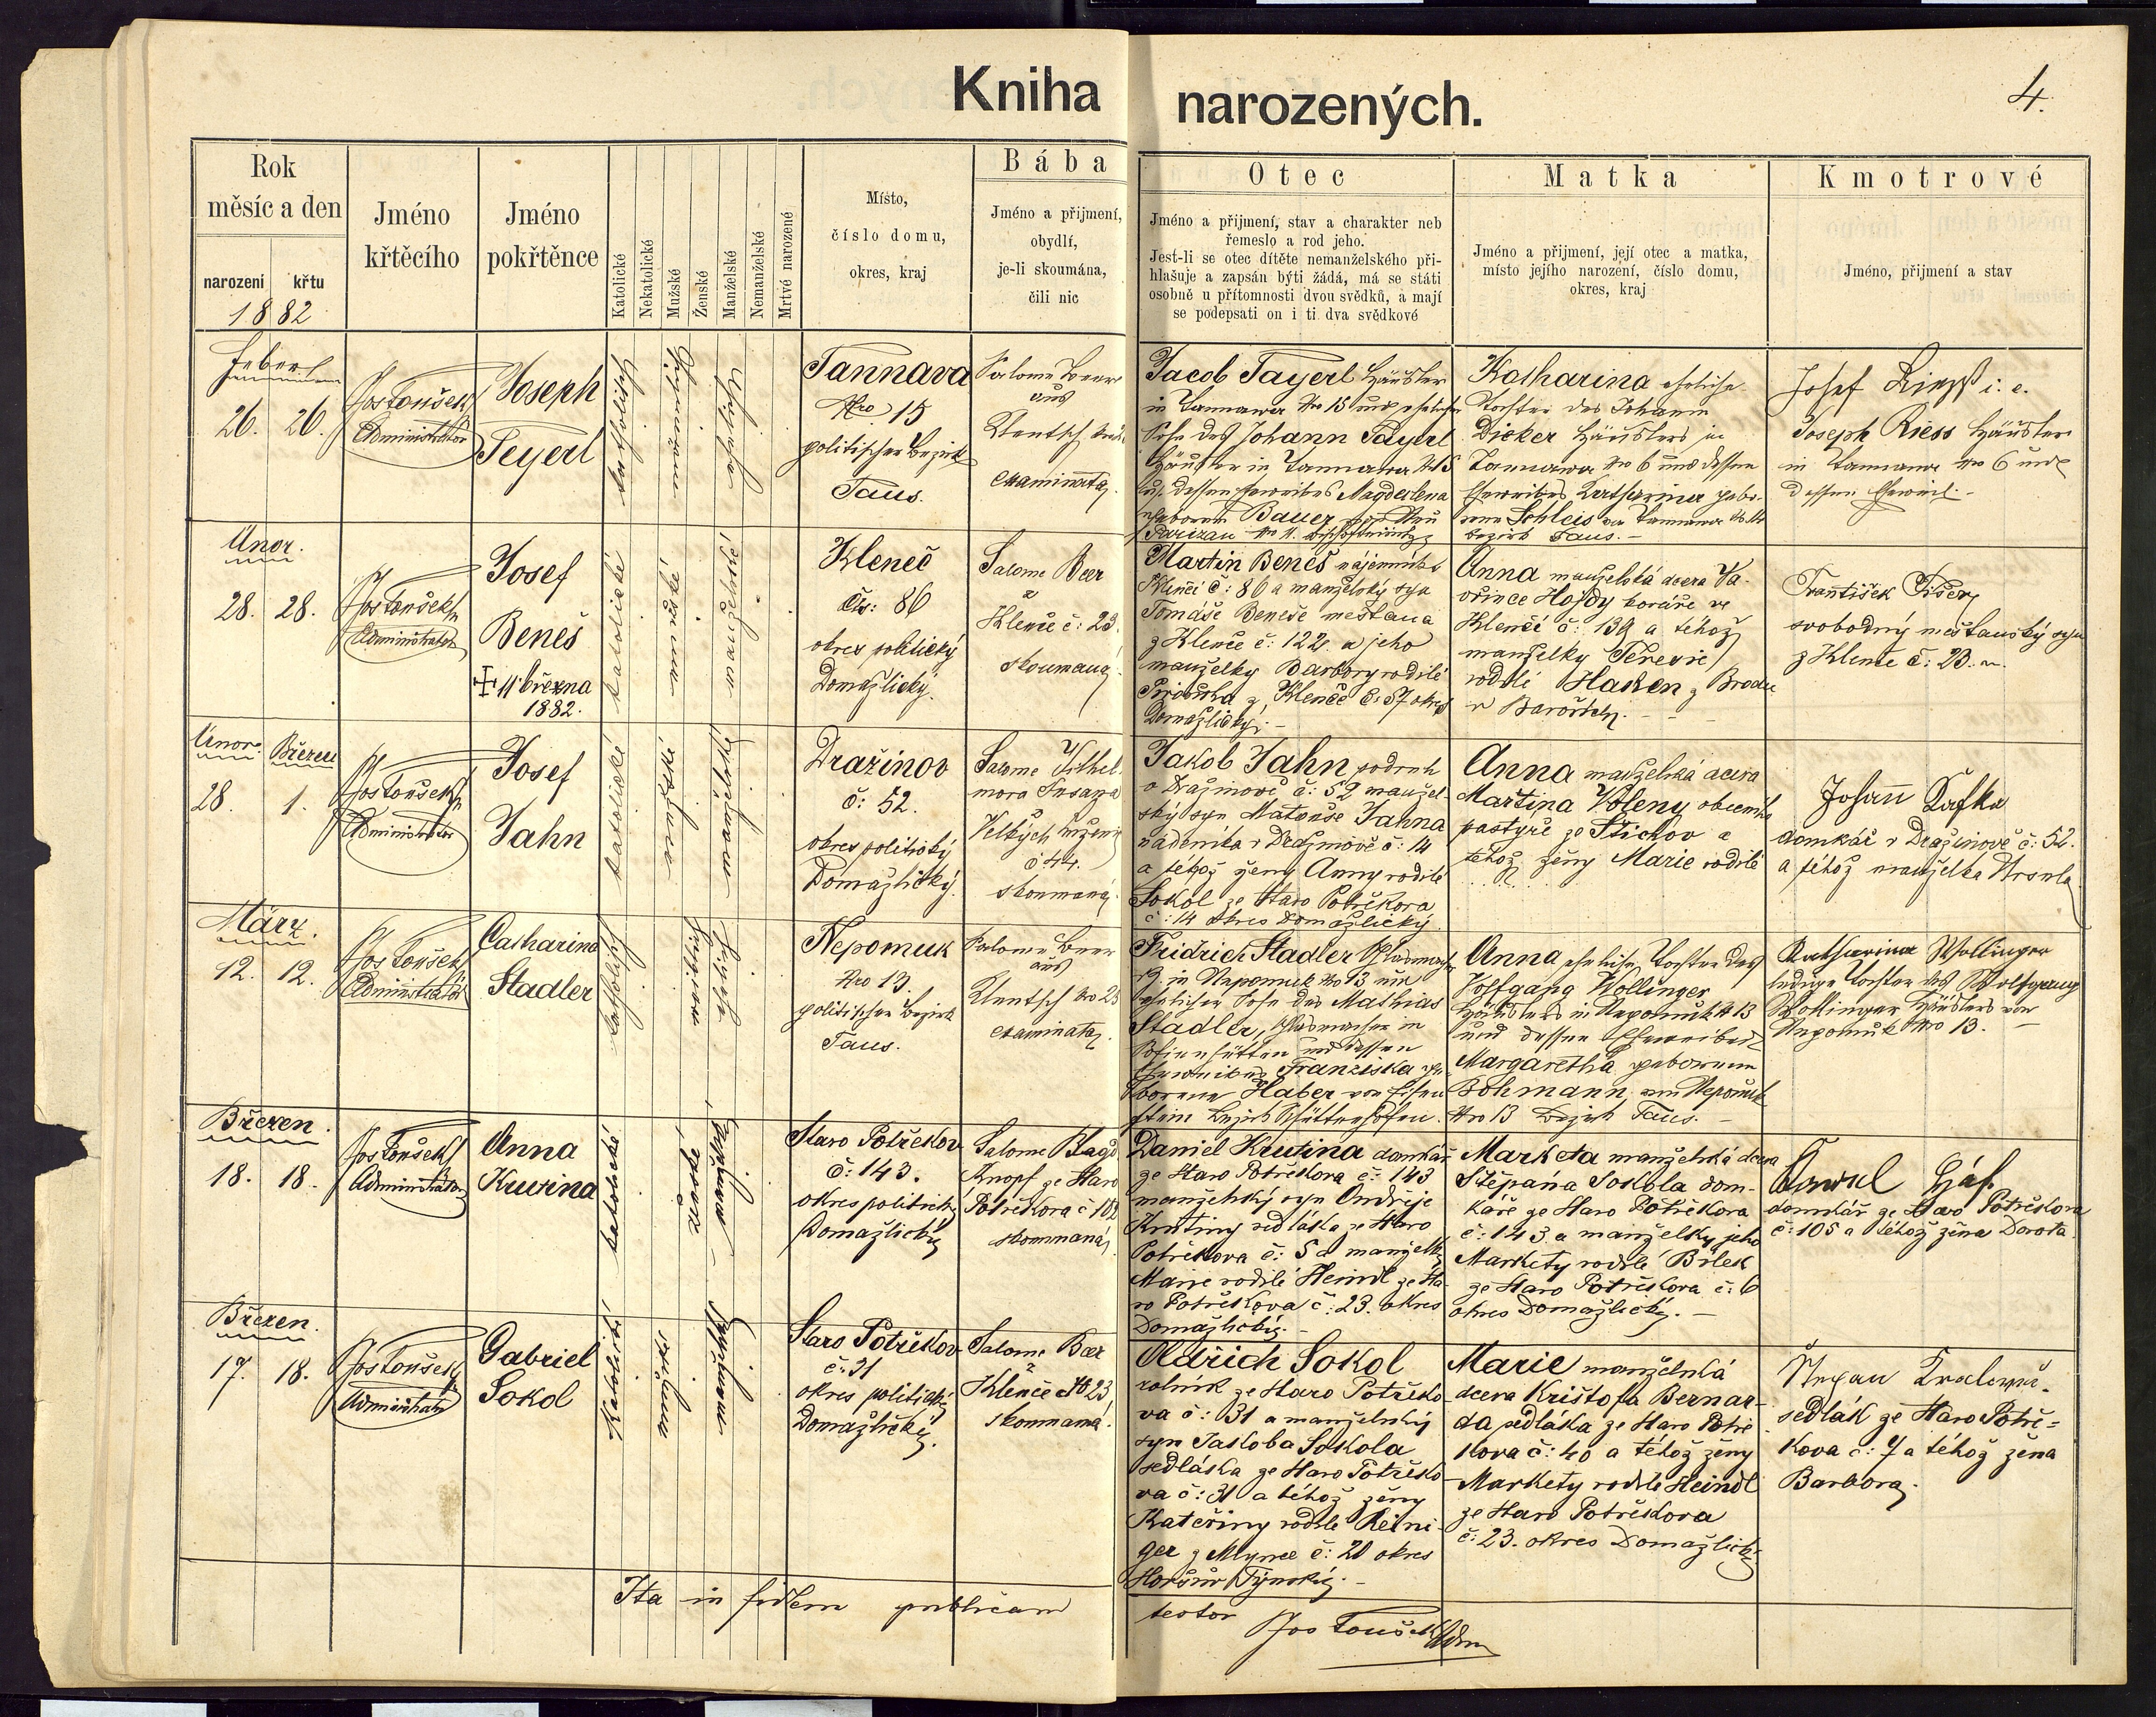 Kniha narozených.
4.
Rok
měsíc a den
narození
křtu
1882
Jméno
křtěcího
Jméno
pokřtěnce
Katolické
Nekatolické
Mužské
Ženské
Manželské
Nemanželské
Mrtvé narozené
Místo,
číslo domu,
okres, kraj
Bába
Jméno a přijmení,
obydlí,
je-li skoumána,
čili nic
Otec
Jméno a přijmení, stav a charakter neb
řemeslo a rod jeho.
Jest-li se otec dítěte nemanželského při-
hlašuje a zapsán býti žádá, má se státi
osobně u přítomnosti dvou svědků, a mají
se podepsati on i ti dva svědkové
Matka
Jméno a přijmení, její otec a matka,
místo jejího narození, číslo domu,
okres, kraj
Kmotrové
Jméno, přijmení a stav
26. 26.
Jos Toušek
Administrator
Joseph
Teyerl
katholisch
Tannava
Nro 15
politischer Bezirk
Taus.
Salome Beer
aus
Klentsch
examinata
Jacob Tayerl Häusler
in Tannawa Nro 15 und ehelicher
Sohn des Johann Tayerl
Häusler in Tannawa N 15
dessen Eheweibes Magdalena
geborene Bauer
Katharina eheliche
Tochter des Johann
Dicker Häuslers in
Tannawa Nro 6 und dessen
Eheweibes Katharina gebo-
rene Schleis von Tannawa
bezirk Taus. -
Josef i. e.
Joseph Riess Häusler
in Tannawa Nro 6 und
dessen Eheweib -
Únor.
28. 28.
Jos Toušek
Administrator
Josef
Beneš
11 března
1882.
katolické
Kleneč
Čís: 86
okres politický
Domažlický.
Salome Beer
z
Klenče č: 23
skoumaná
Martin Beneš nájemník v
Klenči č: 86 a manželský syn
Tomáše Beneše mešťana
z Klenče č: 122 a jeho
manželky Barbory rodilé
z Klenče č: 57 okres
Domažlický. -
Anna manželská dcera Va-
vřince Hojdy kováře ve
Klenčí č: 139 a téhož
manželky Terezie
rodilé z Brodu
v Bavořích.
František
svobodný mešťanský syn
z Klenče č: 23.
Únor. Březen
28. 1.
Jos Toušek
Administrator
Josef
Jahn
katolické
Dražinov
č: 52.
okres politický
Domažlický.
Salome
č 44.
skoumaná.
Jakob Jahn podruh
v Dražinově č: 52 manžel-
ský syn Matouše Jahna
v Dražinově č: 14
a téhož ženy Anny rodilé
Sokol ze Staro Potřekova
č: 14 okres Domažlický.
Anna manželská dcera
Martina Voleny obecního
pastýře ze Štichov a
téhož ženy Marie rodilé
Johann Kafka
domkář v Dražinově č: 52.
a téhož manželka Ursula
März.
12. 12.
Jos Toušek
Administrator
Catharina
Stadler
katholisch
Nepomuk
Nro 13.
politischer Bezirk
Taus.
Salome Beer
aus
Klentsch No 23
examinata
Fridrich Stadler
in Nepomuk Nro 13 und
ehelicher Sohn des Mathias
Stadler, Glasmacher in
Sofienhütten und dessen
Eheweibes Franziska ge-
borene Haber von Eisen
stein Bezirk Schüttenhofen.
Anna eheliche Tochter des
Wolfgang Wollinger
Häuslers in Nepomuk N 13
und dessen Eheweibes
Margaretha geborenen
Bohmann von Nepomuk
Nro 13 Bezirk Taus. -
Katharina Wollinger
ledige Tochter des Wolfgang
Wollinger Häuslers von
Nepomuk Nro 13. -
Březen.
18. 18.
Jos Toušek
Administrator
Anna
Krutina
katolické
Staro Potřekov
č: 143.
okres politický
Domažlický
Salome
Knopf ze Staro
Potřekova č 102
skoumaná
Daniel Krutina domkář
ze Staro Potřekova č: 143
manželský syn Ondřeje
Krutiny sedláka ze Staro
Potřekova č: 5 a manželky
Marie rodilé Heindl ze Sta-
ro Potřekova č: 23. okres
Domažlický. -
Marketa manželská dcera
Štěpána Sokola dom-
káře ze Staro Potřekova
č: 143 a manželky jeho
Markety rodilé Bílek
ze Staro Potřekova č: 6
okres Domažlický. -
domkář ze Staro Potřekova
č: 105 a téhož žena Dorota.
Březen.
17. 18.
Jos Toušek
Administrator
Gabriel
Sokol
Katolické
Staro Potřekov
č: 31
okres politický
Domažlický.
Salome Beer
z
Klenče No 23
skoumaná.
Oldřich Sokol
rolník ze Staro Potřeko-
va č: 31 a manželský
syn Jakoba Sokola
sedláka ze Staro Potřeko-
va č: 31 a téhož ženy
Kateřiny rodilé Reini-
ger z Mlynce č: 20 okres
Horšův Týnský. -
Marie manželská
dcera Krištofa Bernar-
da sedláka ze Staro Potře
kova č: 40 a téhož ženy
Markety rodilé Heindl
ze Staro Potřekova
č: 23. okres Domažlický
sedlák ze Staro Potře-
kova č: 7 a téhož žena
Barbora.
Ita in fidem publicam
testor
Jos Toušek Adm